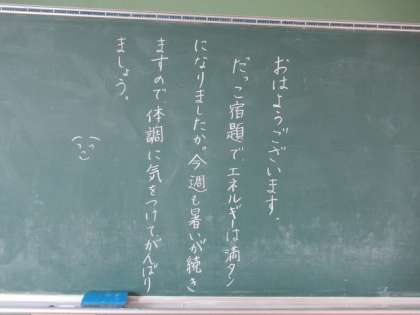 おはようございます。
だっこ宿題で、エネルギーは満タン
になりましたか。今週も暑いが続き
ますので、体調に気をつけてがんばり
ましょう。